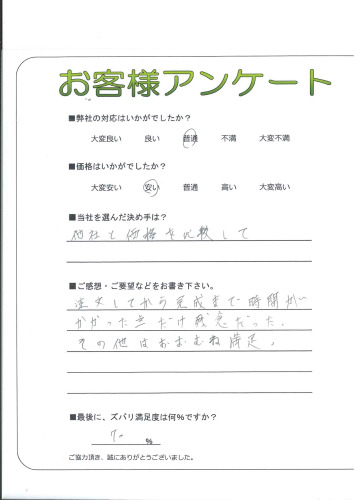 お客様アンケート
■弊社の対応はいかがでしたか？
大変良い 良い 普通 不満 大変不満
■価格はいかがでしたか？
大変安い 安い 普通 高い 大変高い
■当社を選んだ決め手は？
他社と価格を比較して
■ご感想・ご要望などをお書き下さい。
注文してから完成まで時間が
かかった点だけ残念だった。
その他はおおむね満足。
■最後に、ズバリ満足度は何％ですか？
70 ％
ご協力頂き、誠にありがとうございました。